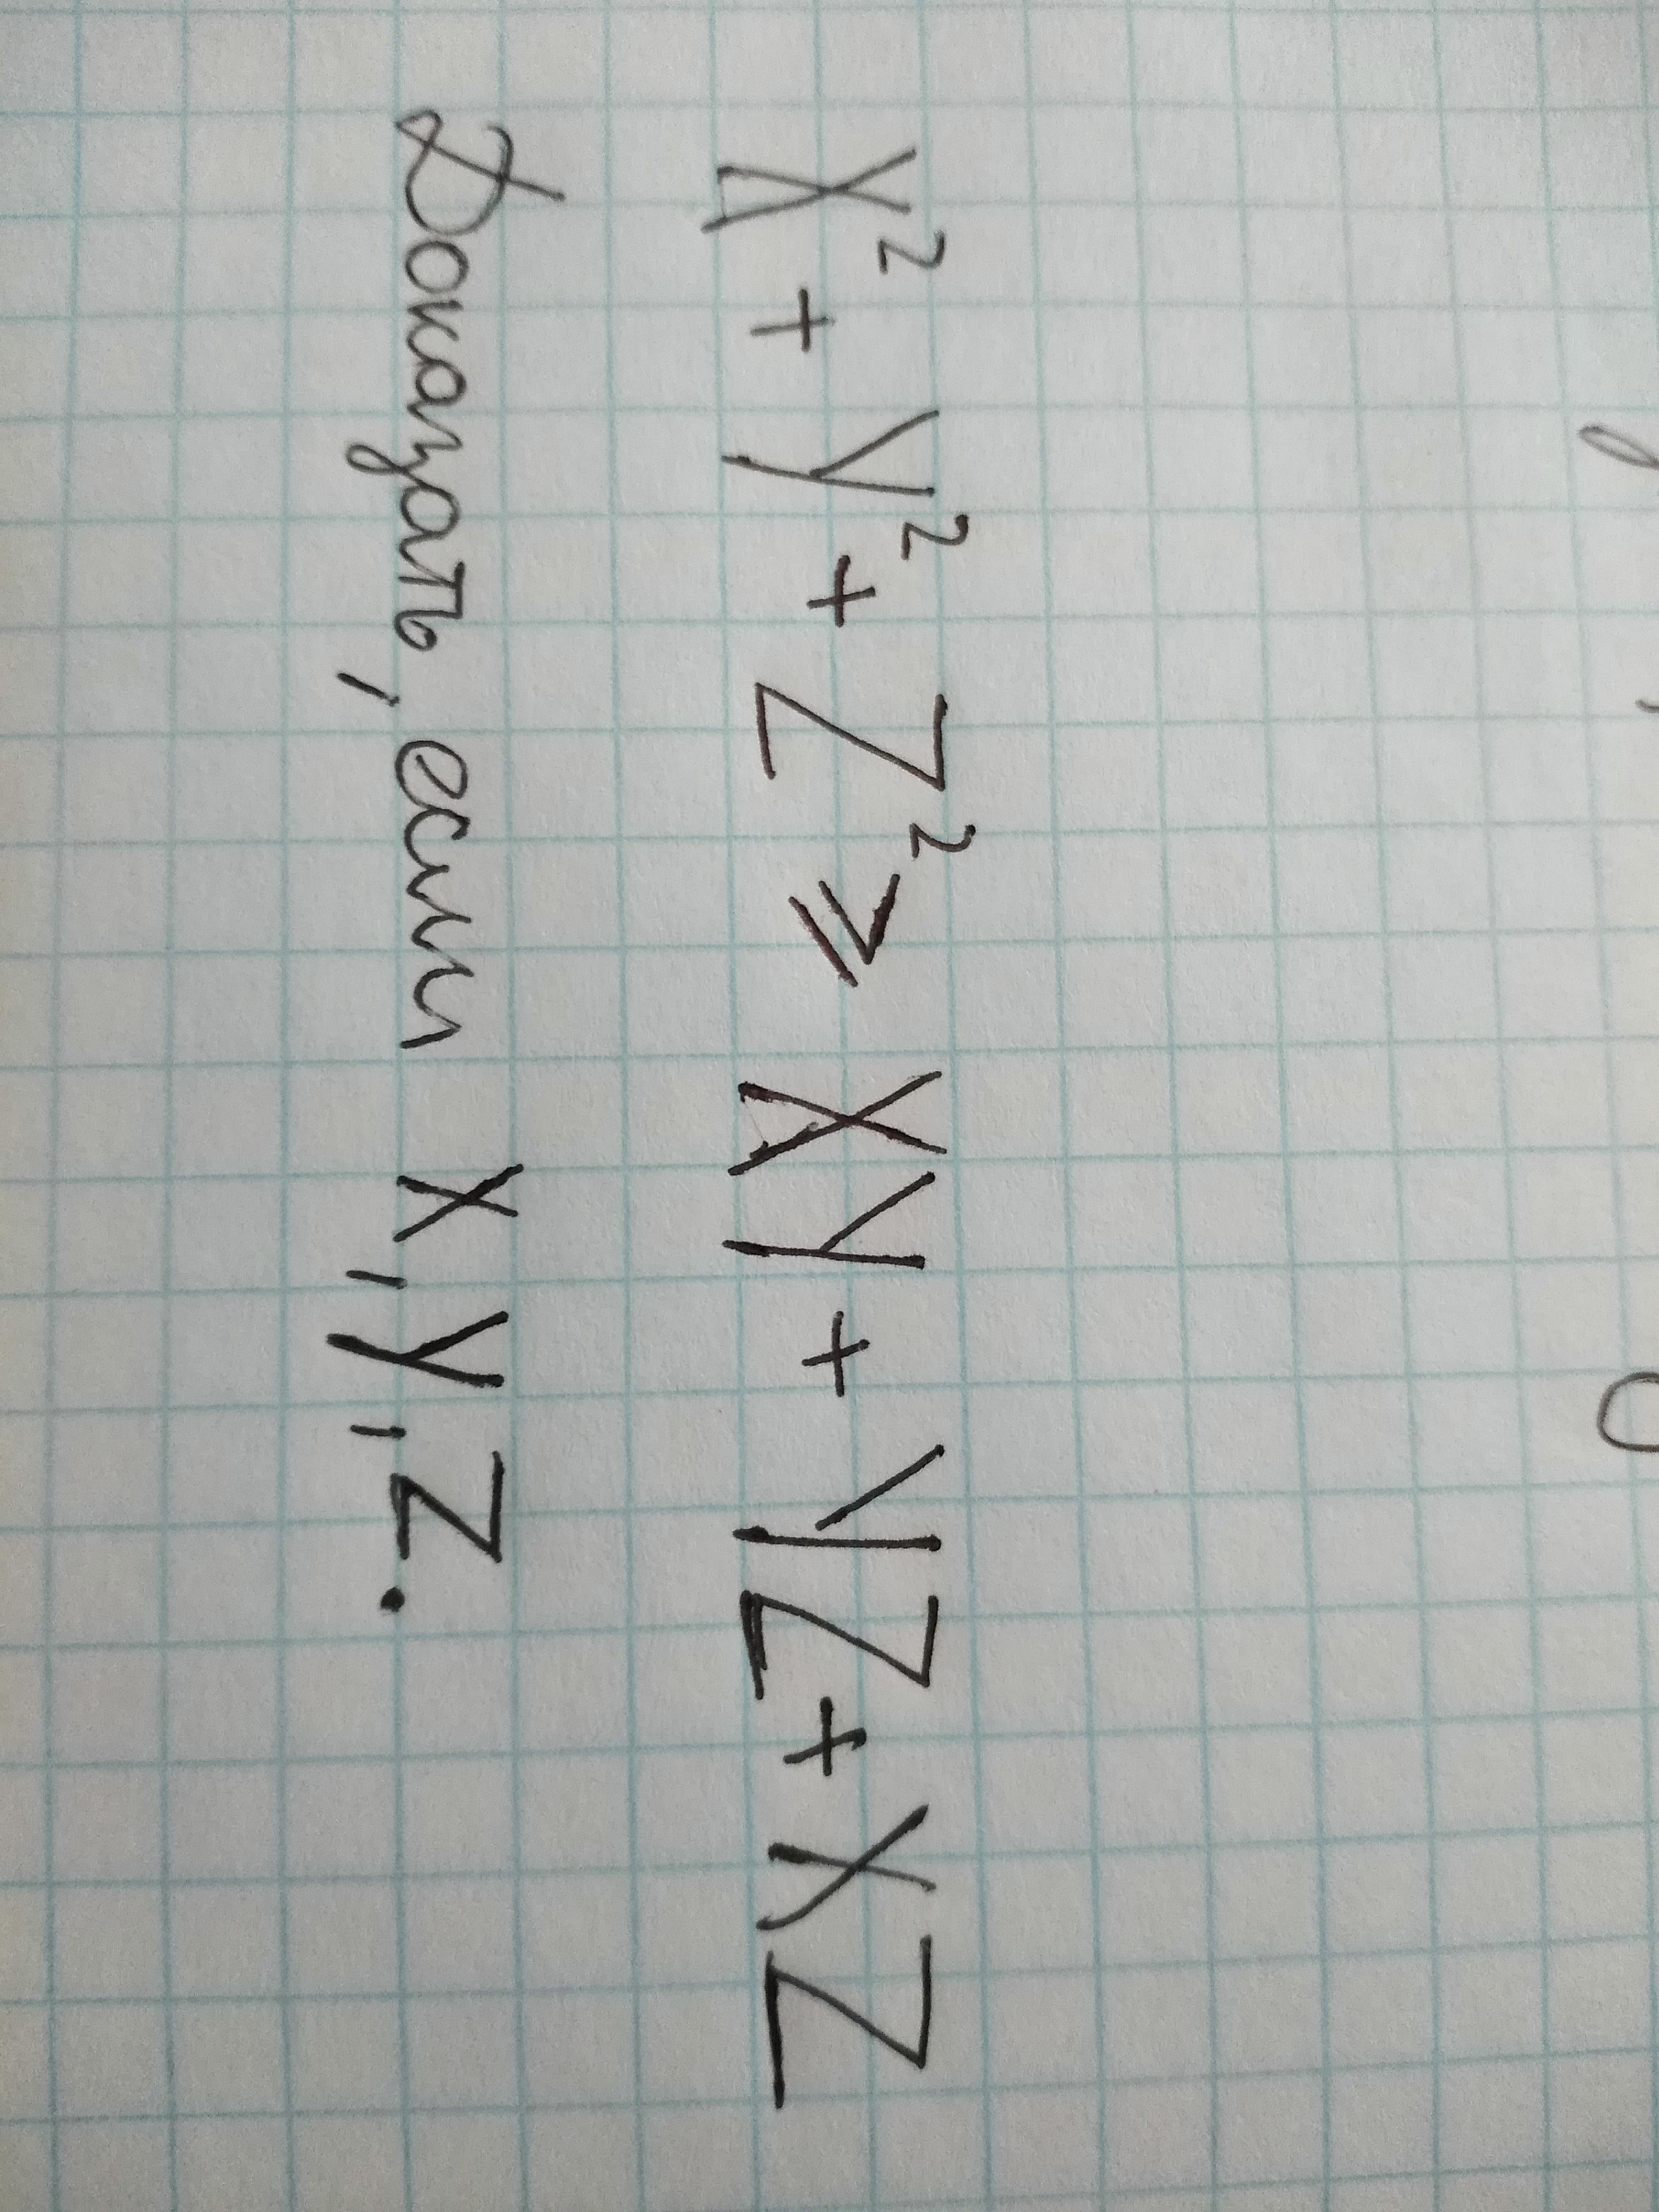 X² + y² + Z² ⩾ Xy + yZ + XZ
Доказать, если x, y, z.